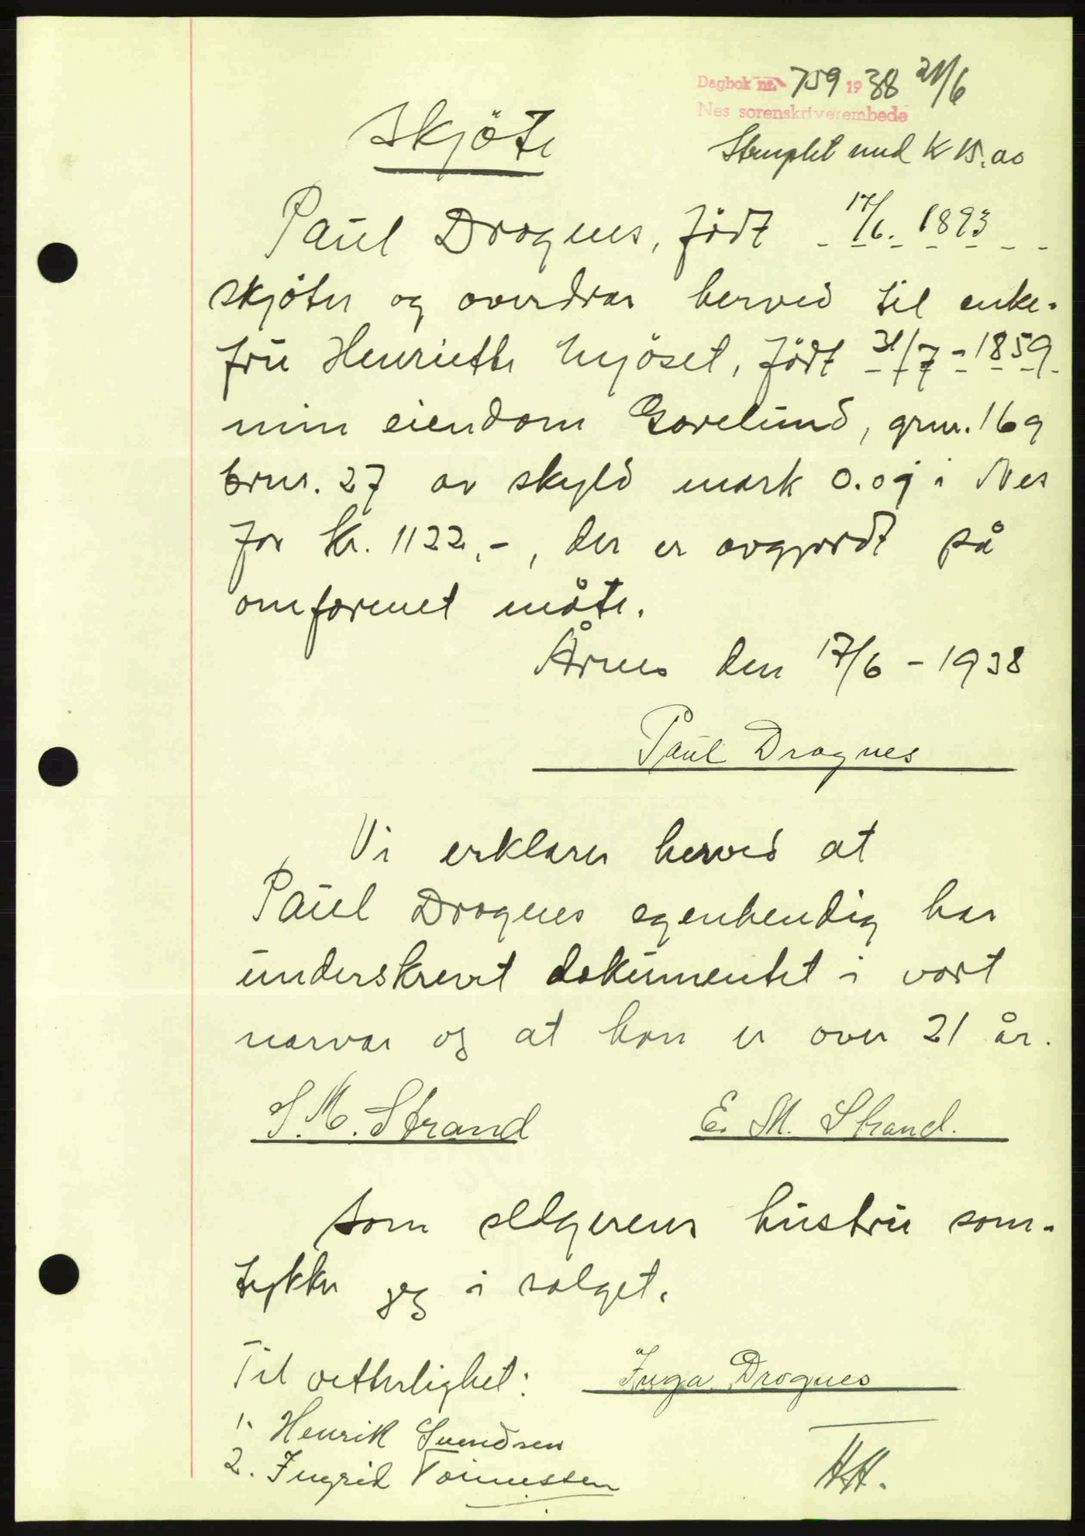 Dagbok nr. 759 1938 21/6
Nes sorenskriverembede
Skjöte
Stemplet med kr 15.00
Paul Dragnes, født 17/6. 1893
skjöter og overdrar herved til enke-
fru Henriette Mjöset, født 31/7 - 1859
min eiendom Gorelund, grnr. 169
brnr. 27 av skyld mark 0.09 i Nes
for kr. 1122,-, der er avgjordt på
omforenet måte.
Årnes den 17/6 - 1938
Paul Dragnes
Vi erklærer herved at
Paul Dragnes egenhendig har
underskrevet dokumentet i vort
nærvær og at han er over 21 år.
S. M. Strand E. M. Strand.
Som selgerens hustru sam-
tykker jeg i salget.
Til vetterlighet: Inga Dragnes
1. Henrik Svendsen
2. Ingrid Tønnessen
HH.